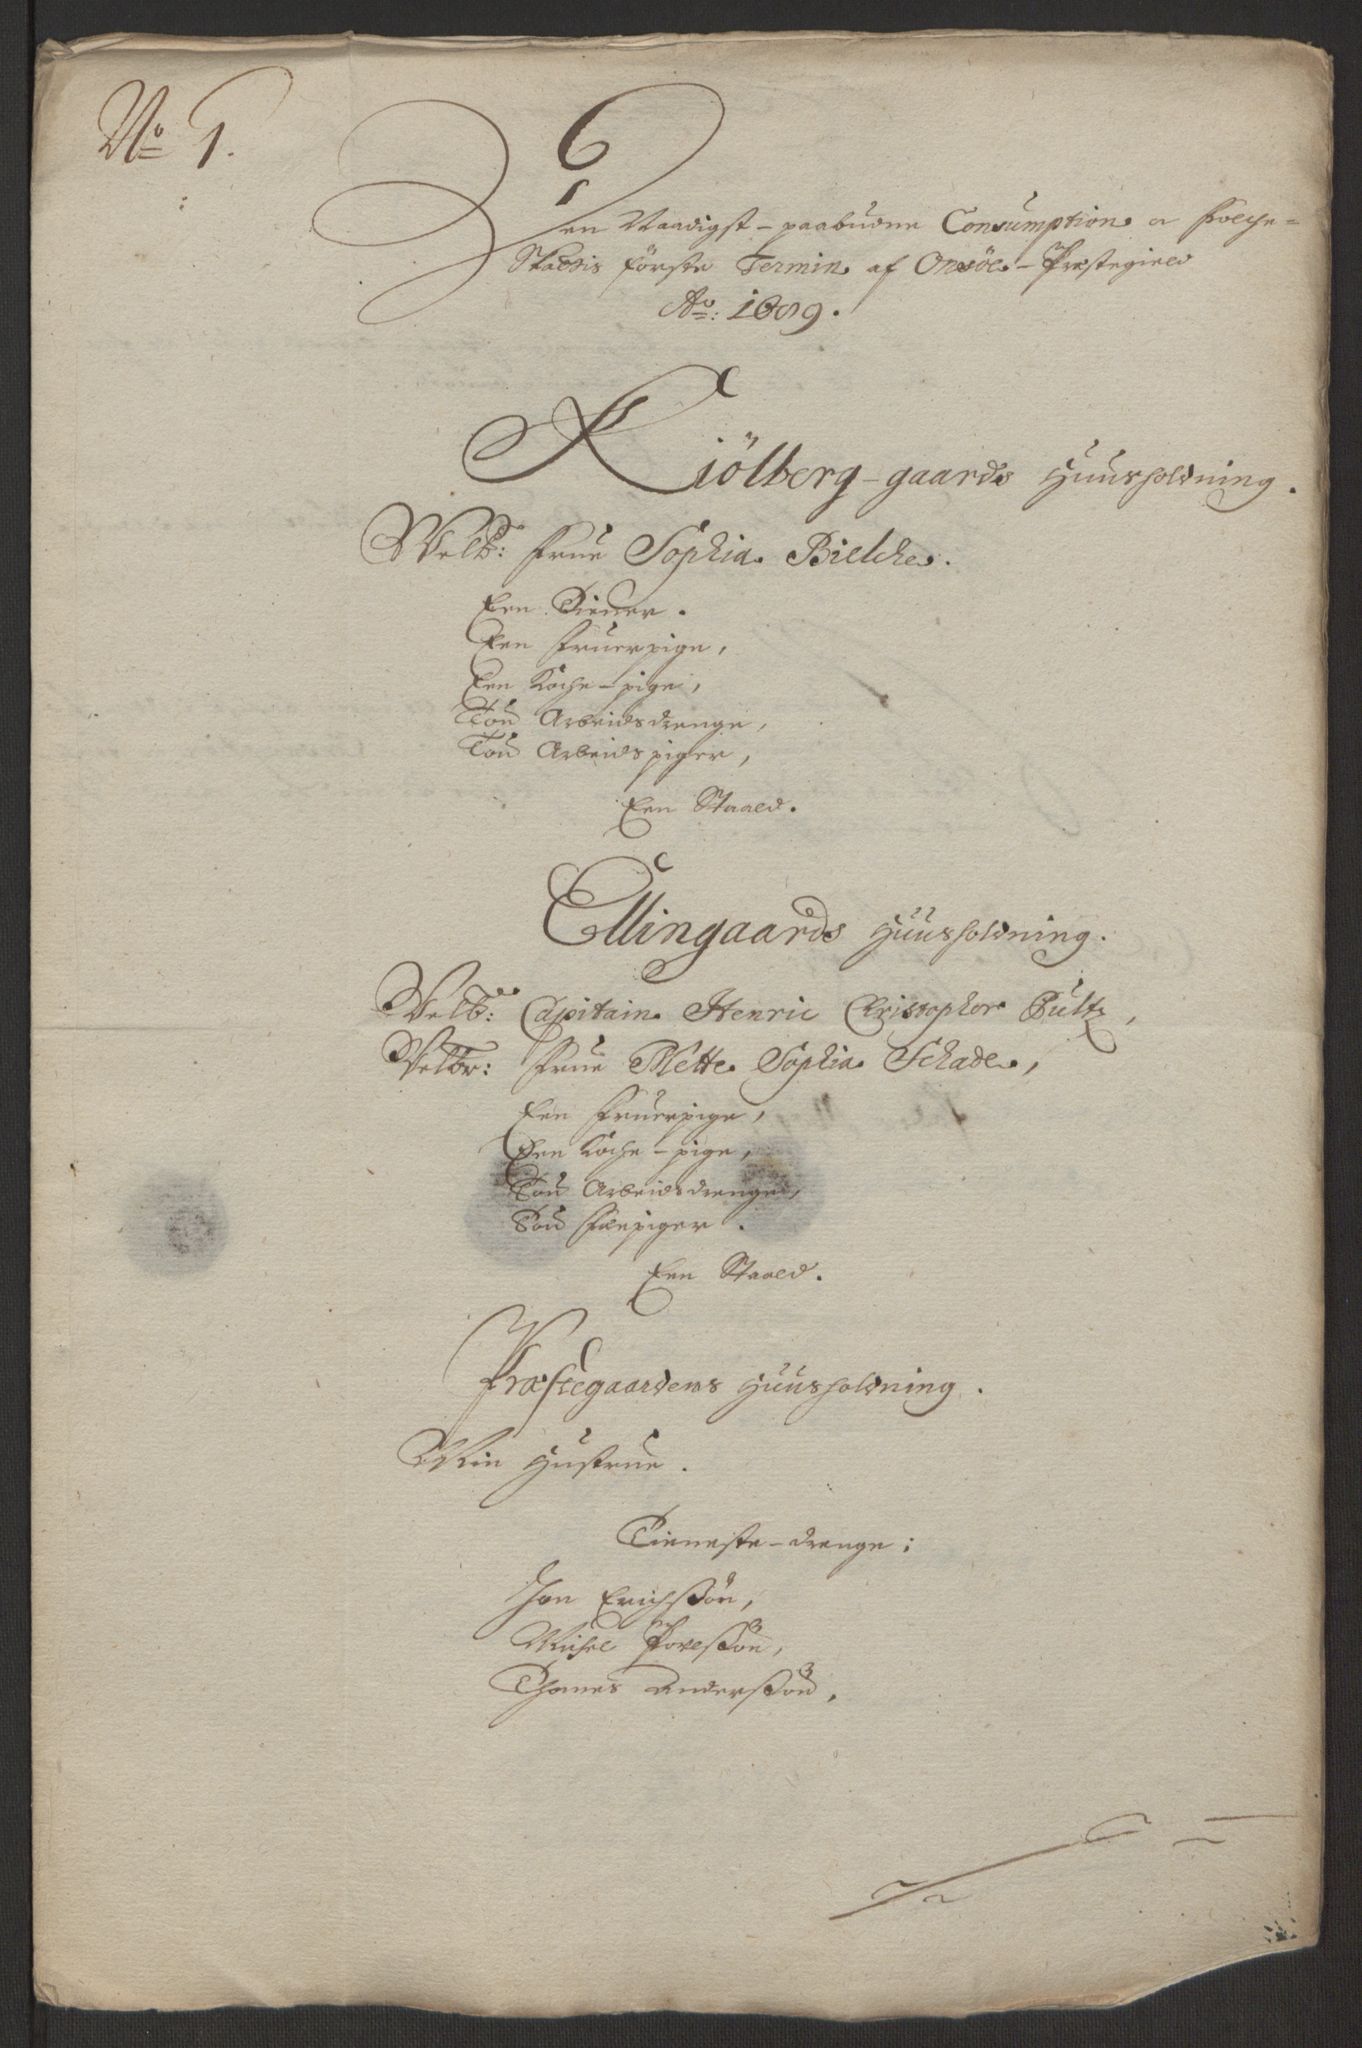 No 1.
Den Naadigst-paabudne Consumption oc Folche-
Skattis förste Termin af Onsöe-Præstegield
Ao: 1689.
Kiölberg-gaards Huusholdning.
Velb: Frue Sophia Bielche.
Een Diener.
Een Fruerpige,
Een Koche-pige,
Tou Arbeidsdrenge,
Tou Arbeidspiger,
Een Staald.
Ellingaards Huusholdning.
Velb: Capitain Henric Christopher Pultz,
Velbr: Frue Mette Sophia Schade,
Een Fruerpige,
Een Koche-pige,
Tou Arbeidsdrenge,
Tou Fæepiger.
Een Staald.
Præstegaardens Huusholdning.
Min Hustrue.
Tieneste-drenge:
Jon Erichssön,
Michel Povelssön,
Thomes Anderssön,